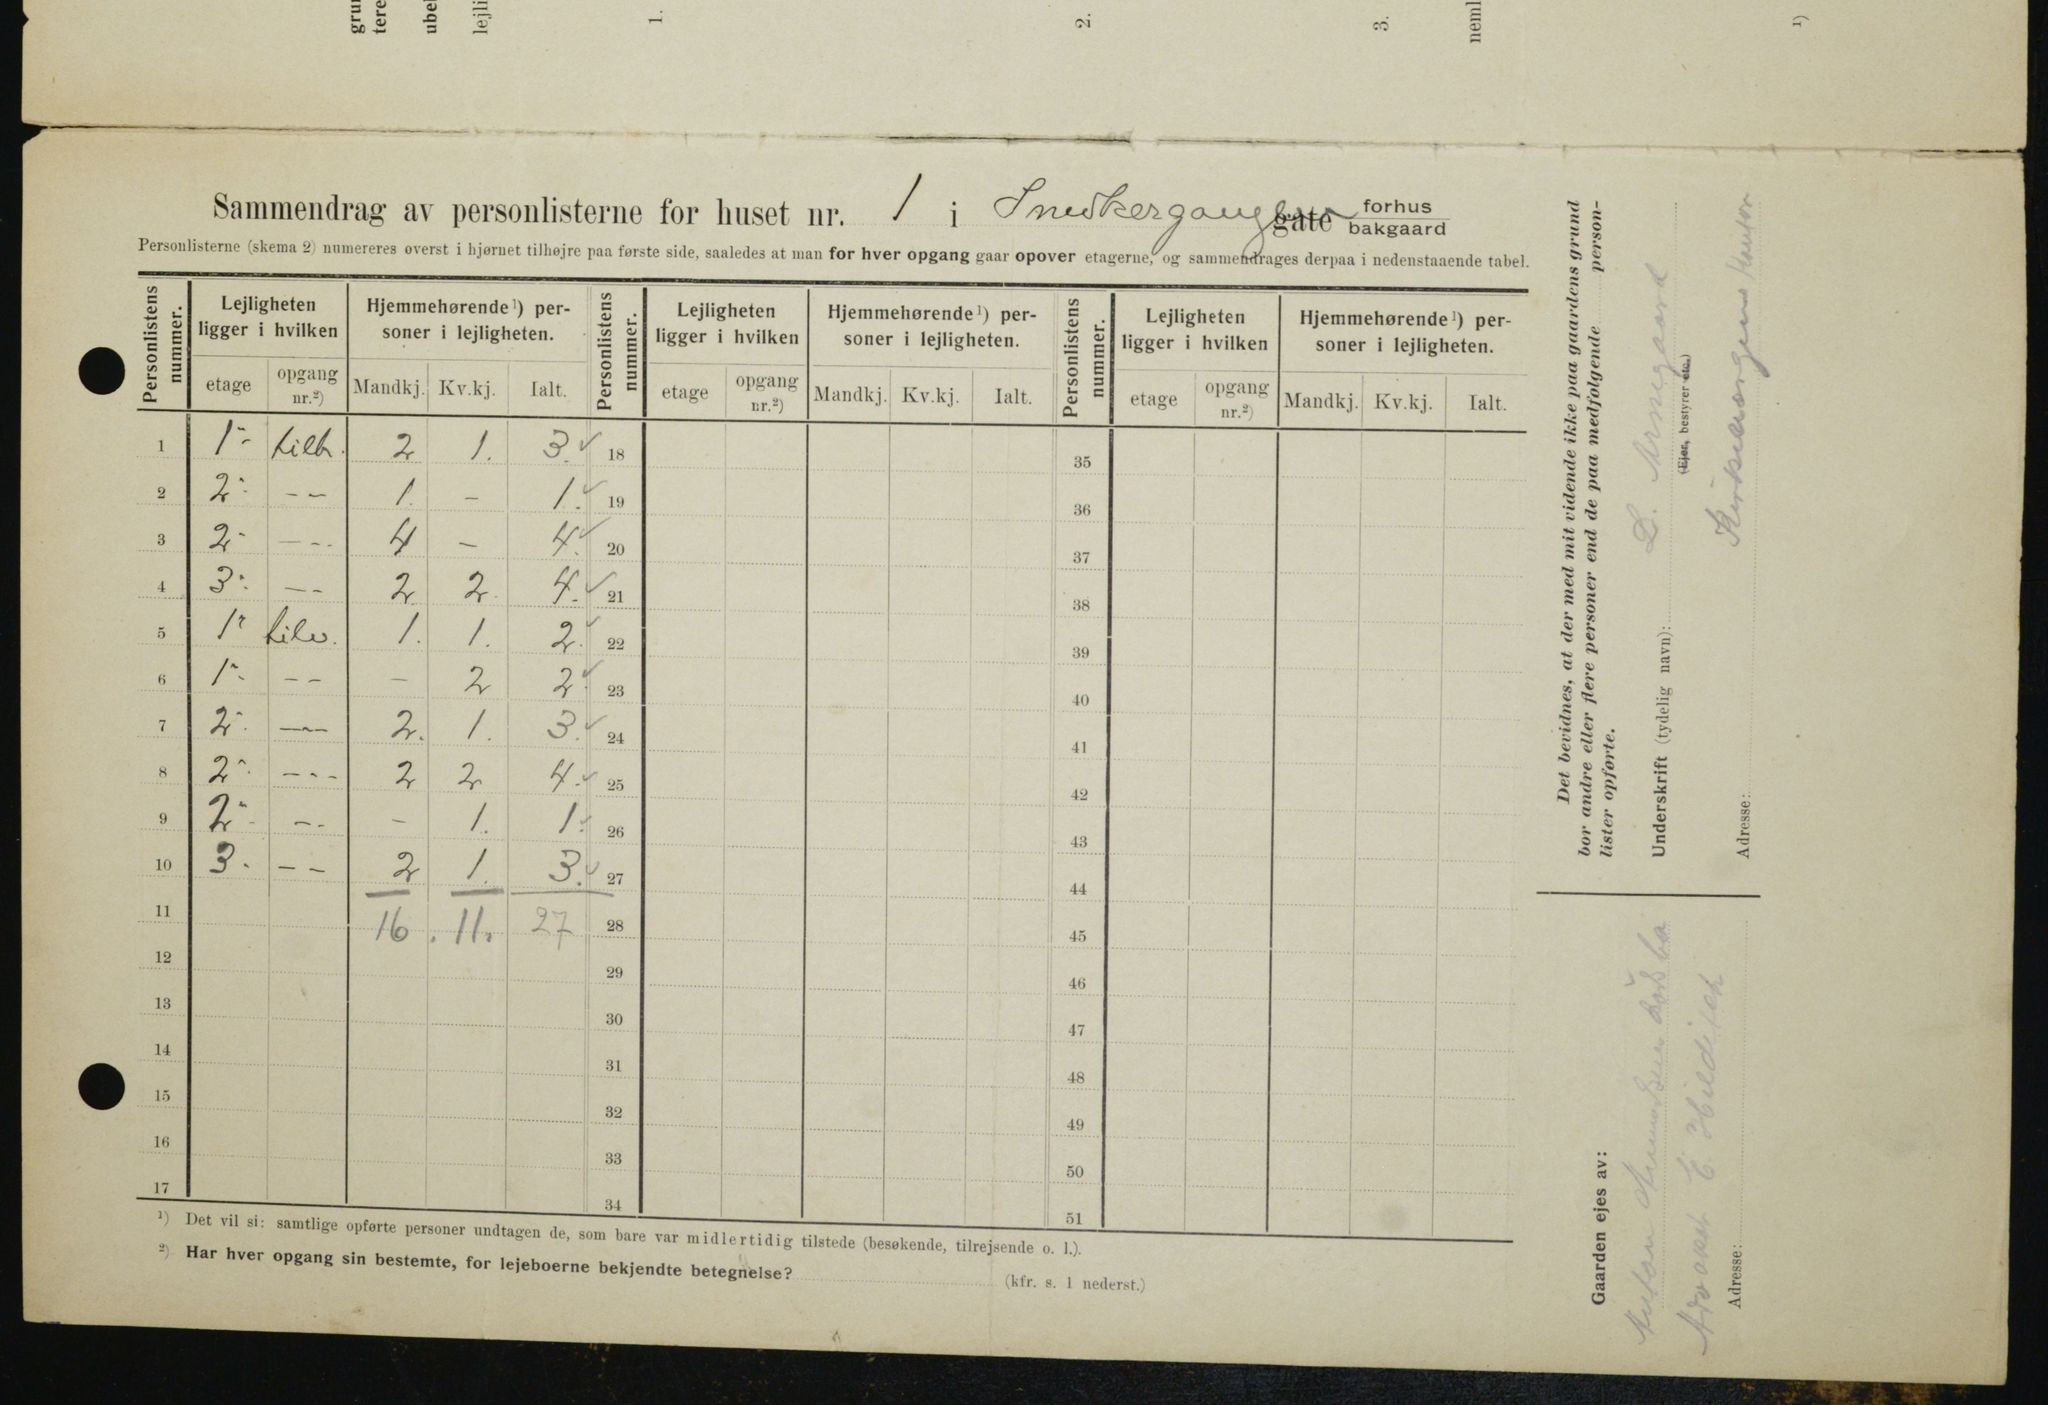 grun
tere
ubel
lejli
1.
2.
3.
neml
¹)
Sammendrag av personlisterne for huset nr. 1 i Snedkergangen gate forhus bakgaard
Personlisterne (skema 2) numereres øverst i hjørnet tilhøjre paa første side, saaledes at man for hver opgang gaar opover etagerne, og sammendrages derpaa i nedenstaaende tabel.
Personlistens nummer. | Lejligheten ligger i hvilken | Hjemmehørende¹) personer i lejligheten. | Personlistens nummer. | Lejligheten ligger i hvilken | Hjemmehørende¹) personer i lejligheten. | Personlistens nummer. | Lejligheten ligger i hvilken | Hjemmehørende¹) personer i lejligheten.
etage | opgang nr.²) | Mandkj. | Kv.kj. | Ialt. | etage | opgang nr.²) | Mandkj. | Kv.kj. | Ialt. | etage | opgang nr.²) | Mandkj. | Kv.kj. | Ialt.
1 1 tilh. 2 1. 3. ✓ 18 35
2 2 – – 1. – 1. ✓ 19 36
3 2 – – – 4 – 4. ✓ 20 37
4 3 – – 2 2. 4. ✓ 21 38
5 1 tilv. 1. 1. 2. ✓ 22 39
6 1 – – – 2 2. ✓ 23 40
7 2 – – – 2. 1. 3. ✓ 24 41
8 2 – – – 2 2 4. ✓ 25 42
9 2 – – – 1. 1. ✓ 26 43
10 3 – – 2 1. 3. ✓ 27 44
11 16. 11. 27 28 45
12 29 46
13 30 47
14 31 48
15 32 49
16 33 50
17 34 51
¹) Det vil si: samtlige opførte personer undtagen de, som bare var midlertidig tilstede (besøkende, tilrejsende o. l.).
²) Har hver opgang sin bestemte, for lejeboerne bekjendte betegnelse? (kfr. s. 1 nederst.)
Det bevidnes, at der med mit vidende ikke paa gaardens grund
bor andre eller flere personer end de paa medfølgende person-
lister opførte.
Underskrift (tydelig navn): L. Arnegaard
(Ejer, bestyrer etc.)
Adresse:
Gaarden ejes av:
Anton
Advokat E. Hilditch
Adresse: